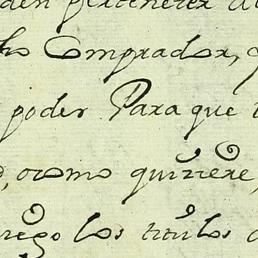 den pertenecer a
dho Comprador,
poder Para que
ocomo quiziere,
rego los titulos